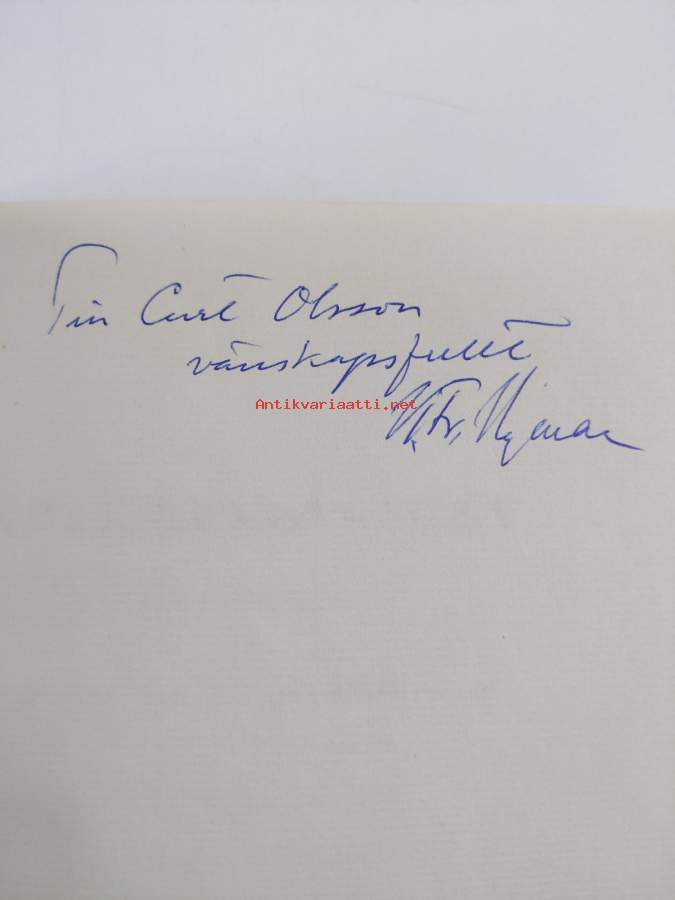 Till Curt Olsson
vänskapsfullt
Antikvariaatti.net
Nyman